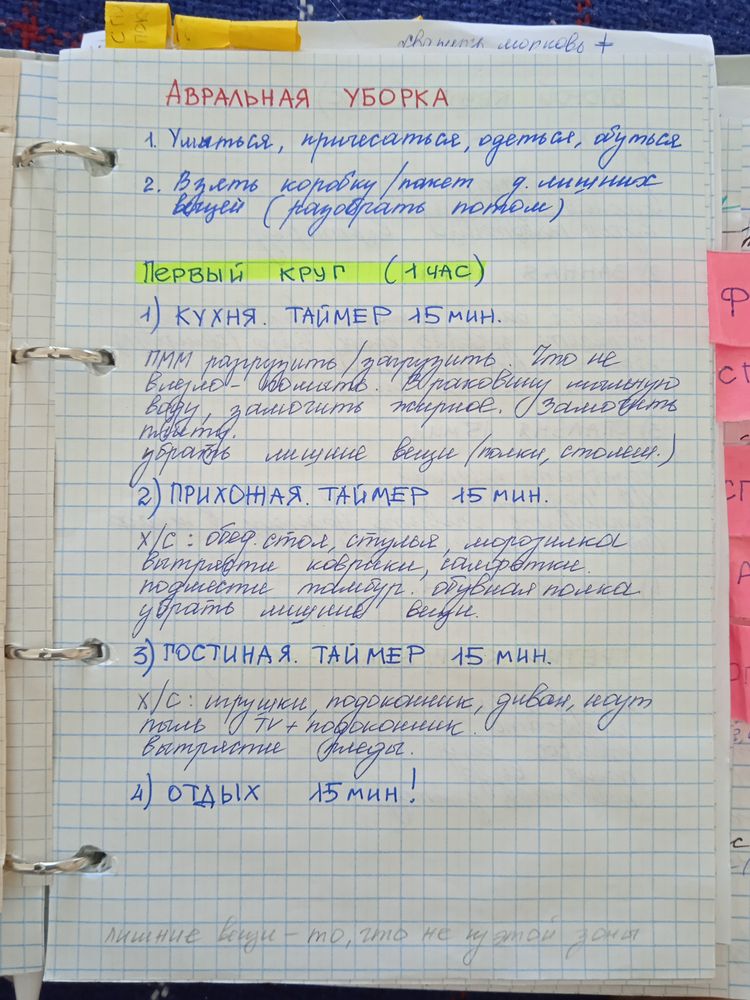 СПИ
ПОК
морковь +
АВРАЛЬНАЯ УБОРКА
1. Умыться, причесаться, одеться, обуться
2. Взять коробку/пакет д. лишних
вещей (разобрать потом)
ПЕРВЫЙ КРУГ (1 ЧАС)
1) КУХНЯ. ТАЙМЕР 15 МИН.
ПММ разгрузить/загрузить. Что не
влезло - помыть. В раковину мыльную
воду, замочить жирное. Замочить
плиту.
убрать лишние вещи (полки, столеш.)
2) ПРИХОЖАЯ. ТАЙМЕР 15 МИН.
Х/С: обед. стол, стулья, морозилка
вытрясти коврики, салфетки.
подмести тамбур. обувная полка
убрать лишние вещи.
3) ГОСТИНАЯ. ТАЙМЕР 15 МИН.
Х/С: игрушки, подоконник, диван, ноут
пыль TV + подоконник.
вытрясти пледы.
4) ОТДЫХ 15 МИН!
лишние вещи - то, что не из этой зоны
Ф
СП
СП